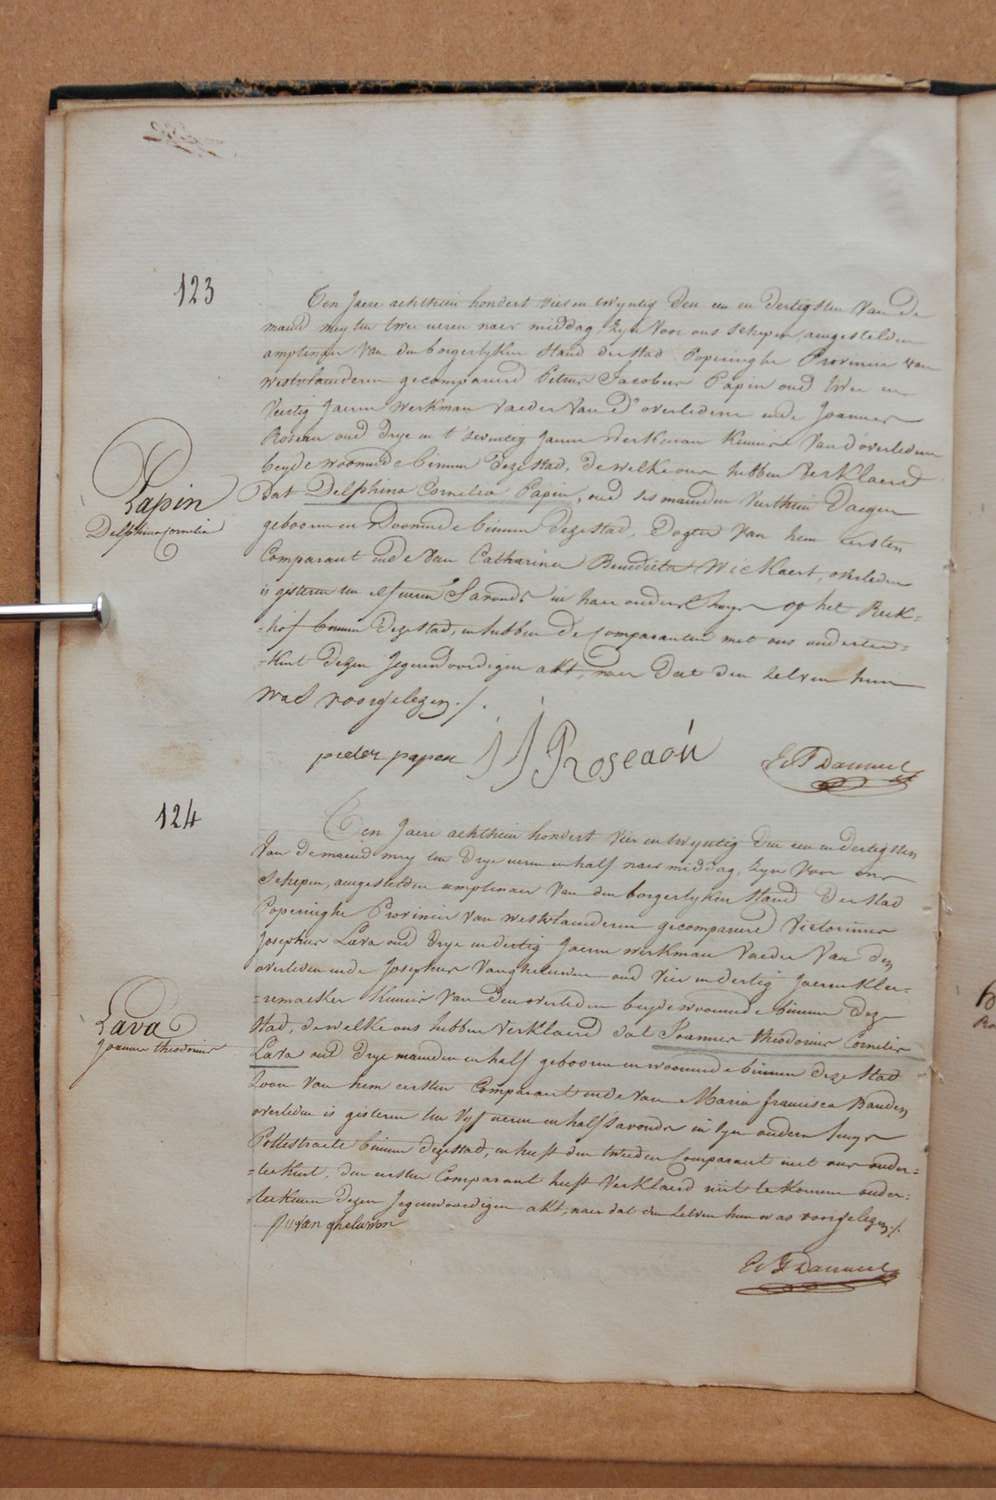 123
Den Jaere achthien hondert vier en twyntig den een en dertigsten van de
maand mey ten twee uren naer middag, zyn voor ons schepen, aengestelden
amptenaer van den borgerlyken stand der stad Poperinghe Provincie van
westvlaenderen gecompareerd Petrus Jacobus Papin oud twee en
veertig Jaeren werkman vaeder van d'overledene ende Joannes
Roseau oud drye en t'seventig Jaeren werkman kennis van d'overledene
beyde woonende binnen deze stad, de welke ons hebben verklaerd
Papin
Delphina Cornelia
Dat Delphina Cornelia Papin, oud ses maenden veerthien daegen
geboren en woonende binnen deze stad, dogter van hem eersten
Comparant ende van Catharina Benedicta Wickaert, overleden
is gisteren ten elf uren s'avonds in haer ouders huys op het Kerk-
-hof binnen deze stad, en hebben de Comparanten met ons onderteek-
-kent dezen Jegenwoordigen akt, naer dat den zelven hun
was voorgelezen ./.
pieter papen JJ Roseaon Ed F Danneel
124
Den Jaere achthien hondert vier en twyntig den een en dertigsten
van de maend mey ten drye uren en half naer middag, zyn voor ons
schepen, aengestelden amptenaer van den borgerlyken stand der stad
Poperinghe Provincie van westvlaenderen gecompareerd Victorinus
Josephus Lava oud drye en dertig Jaeren werkman vaeder van den
overleden ende Josephus Vangheluwen oud vier en dertig Jaeren klee-
-remaeker kennis van den overleden beyde woonende binnen deze
Lava
Joannes theodorus
stad, de welke ons hebben verklaerd dat Joannes theodorus Cornelis
Lava oud drye maenden en half geboren en woonende binnen deze stad
Zoon van hem eersten Comparant ende van Maria francisca Banden
overleden is gisteren ten vyf uren en half s'avonds in zyn ouders huys
Pottestraete binnen deze stad, en heeft den tweeden Comparant met ons onder-
-teekent, den eersten Comparant heeft verklaerd niet te konnen onder-
-teekenen dezen Jegenwoordigen akt, naer dat den zelven hun was voorgelezen ./.
J van gheluwen
Ed F Danneel